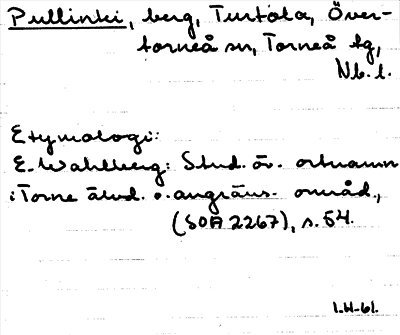 Pullinki, berg, Turtola, Över-
torneå sn, Torneå tg,
Nb. l.
Etymologi:
E. Wahlberg: Stud. öv. ortnamn
i Torne älvd. o. angräns. områd.,
(SOA 2267), s. 54.
1.H-61.